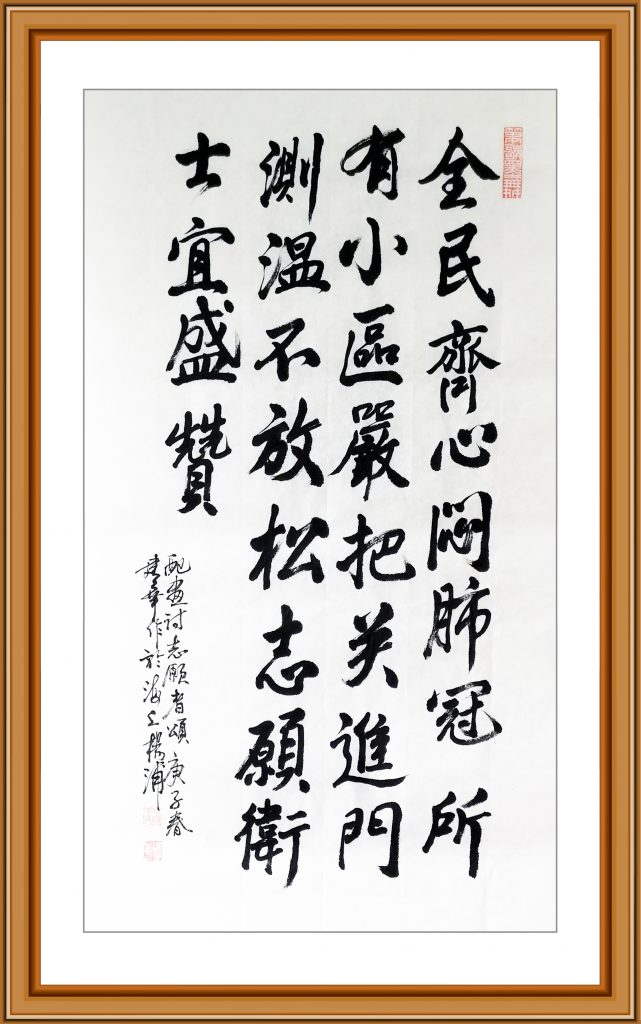 全民齊心肺冠所
有小區嚴把关進門
測温不放松志願衛
士宜盛贊
配畫诗志愿者頌庚子春
建華作於海上楊浦